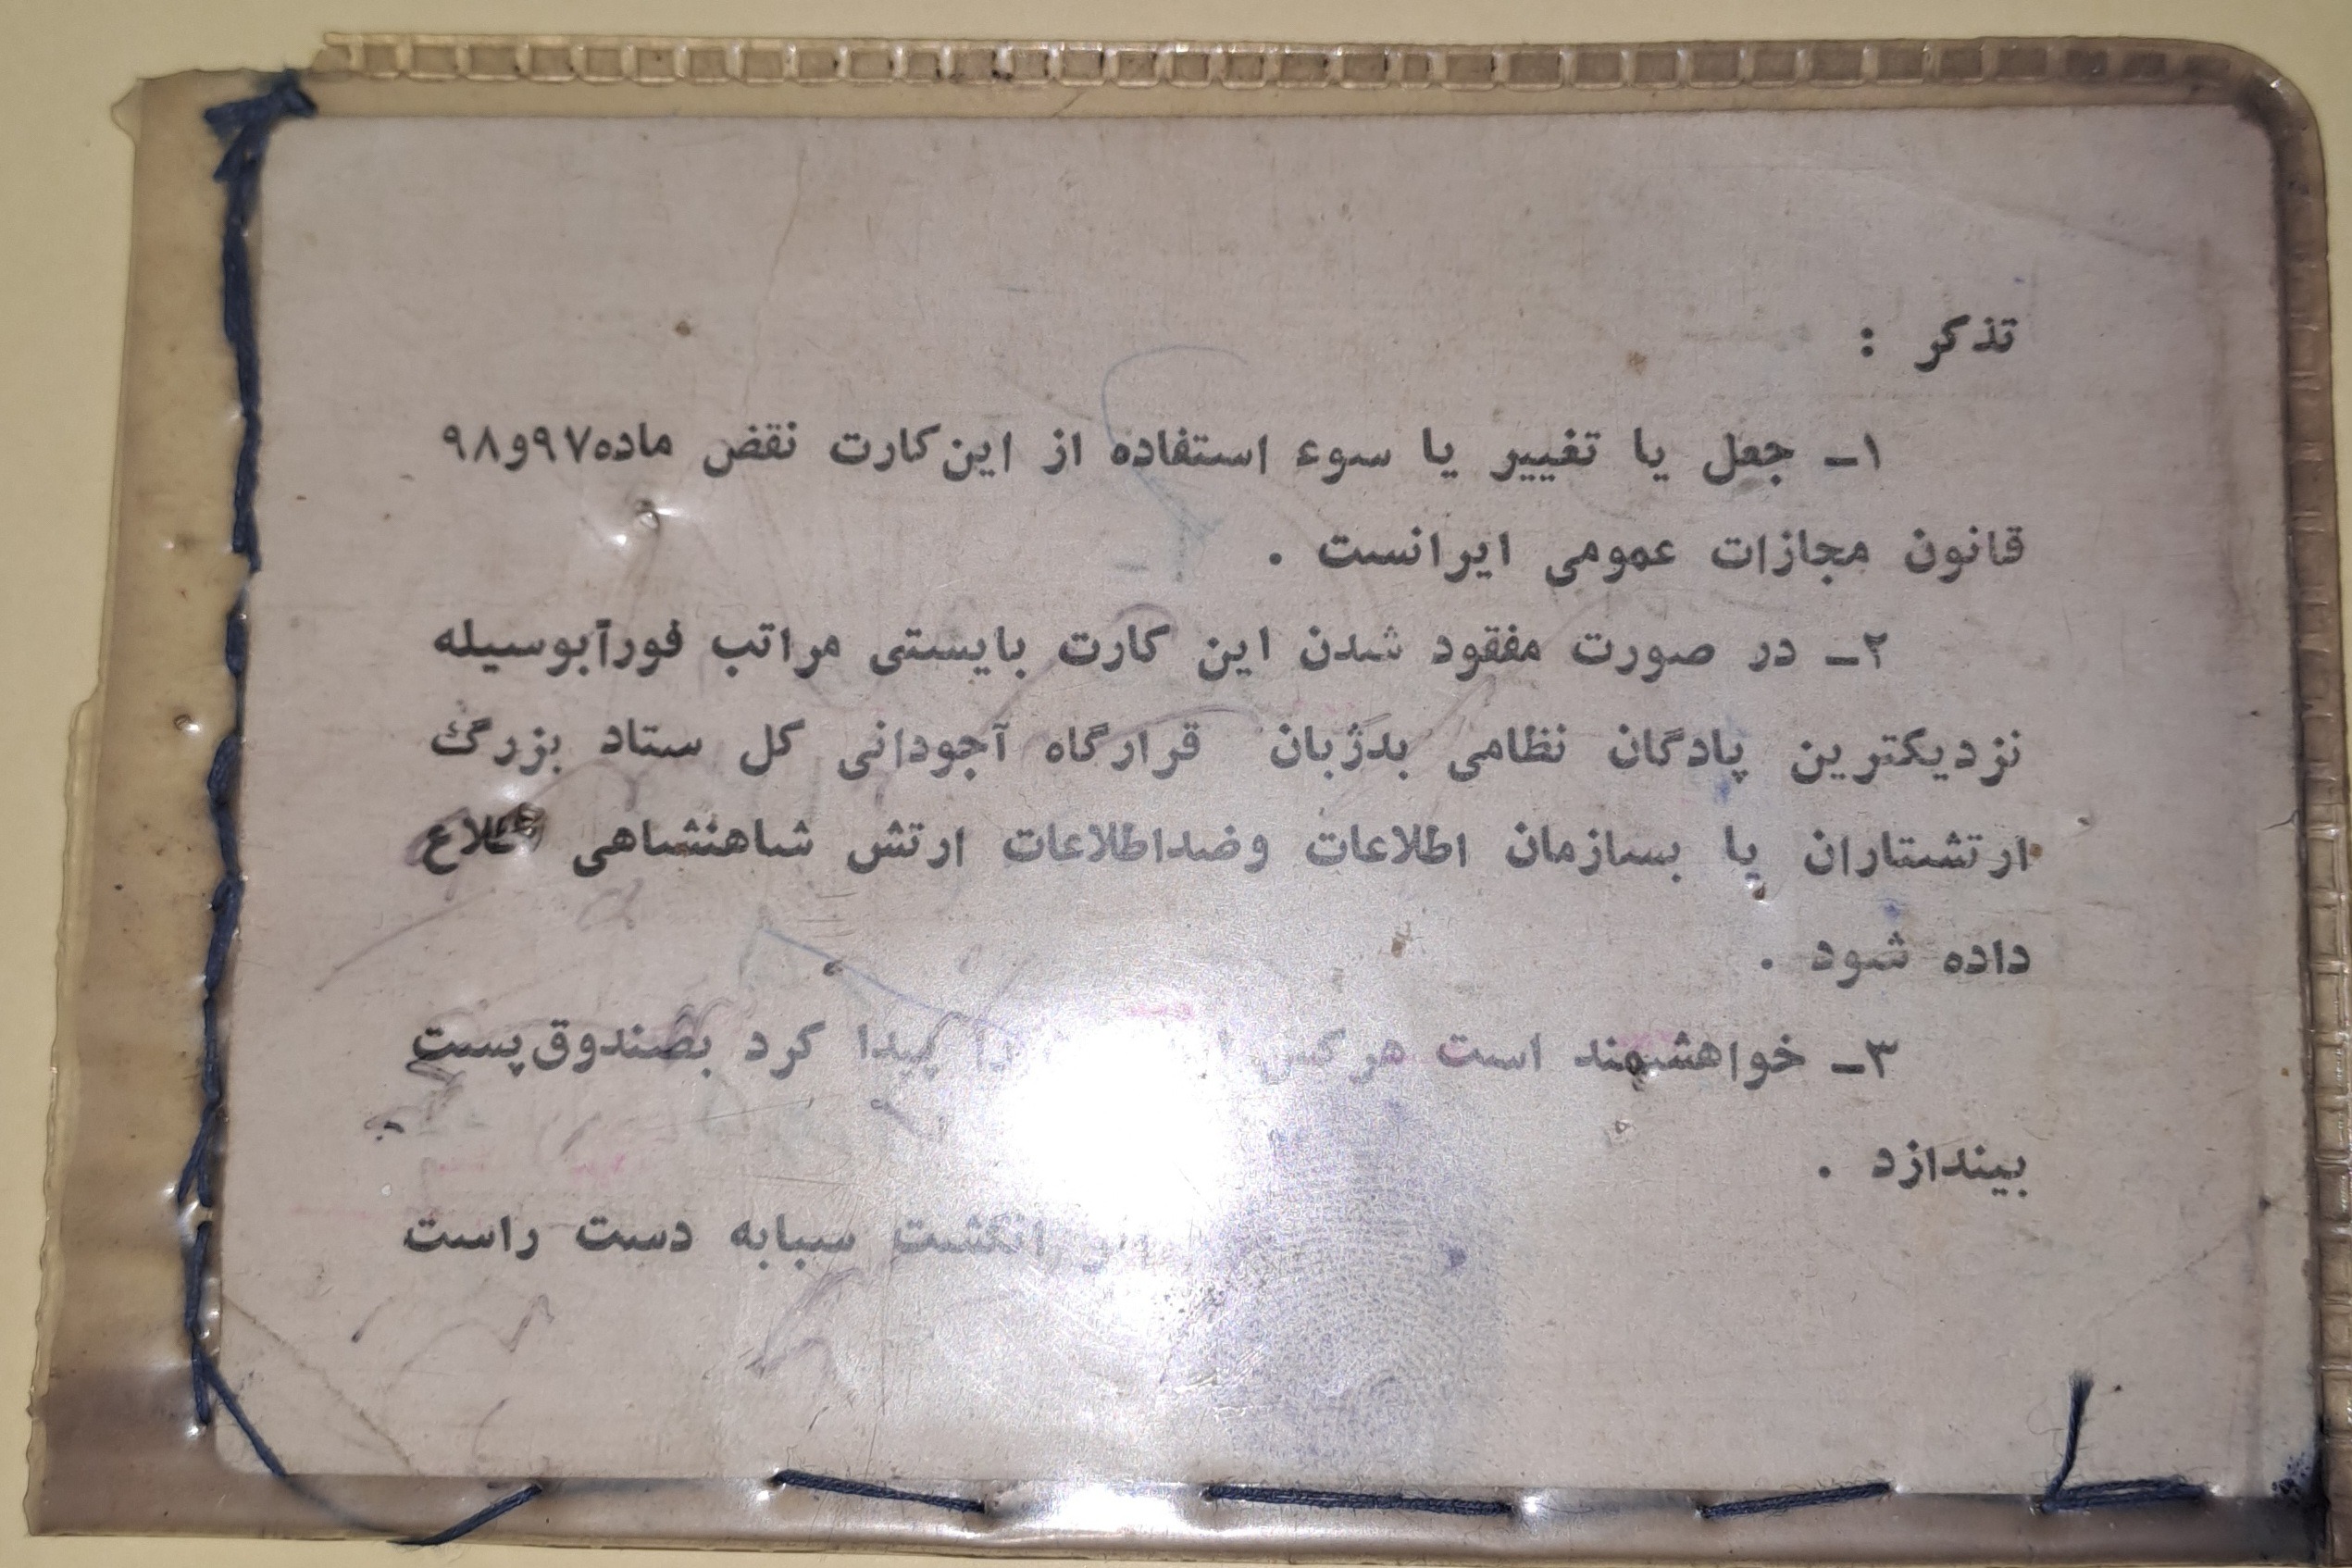 تذکر :
۱ـ جعل یا تغییر یا سوء استفاده از این کارت نقض ماده ۹۷و۹۸
قانون مجازات عمومی ایرانست .
۲ـ در صورت مفقود شدن این کارت بایستی مراتب فورآبوسیله
نزدیکترین پادگان نظامی بدژبان قرارگاه آجودانی کل ستاد بزرگ
ارتشتاران یا بسازمان اطلاعات وضداطلاعات ارتش شاهنشاهی اطلاع
داده شود .
۳ـ خواهشمند است هر کس را پیدا کرد بصندوق پست
بیندازد .
انگشت سبابه دست راست